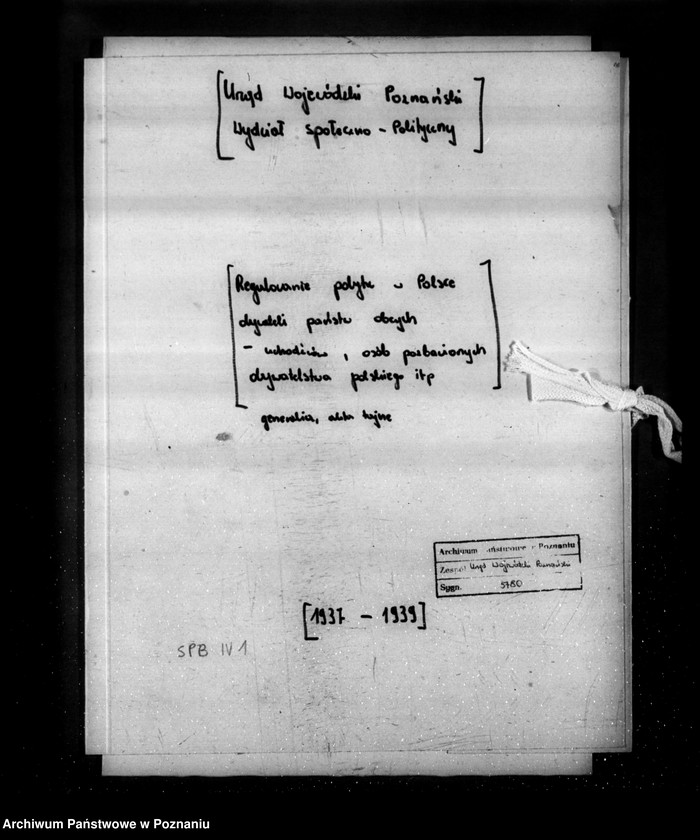 [Urząd Wojewódzki Poznański]
Wydział Społeczno - Polityczny]
[Regulowanie pobytu w Polsce
obywateli państw obcych
- uchodźców, osób pozbawionych
obywatelstwa polskiego itp]
generalia, akta tajne
Archiwum Państwowe w Poznaniu
Zespół Urząd Wojewódzki Poznański
Sygn. 5780
[1937 - 1939]
SPB IV 1
Archiwum Państwowe w Poznaniu